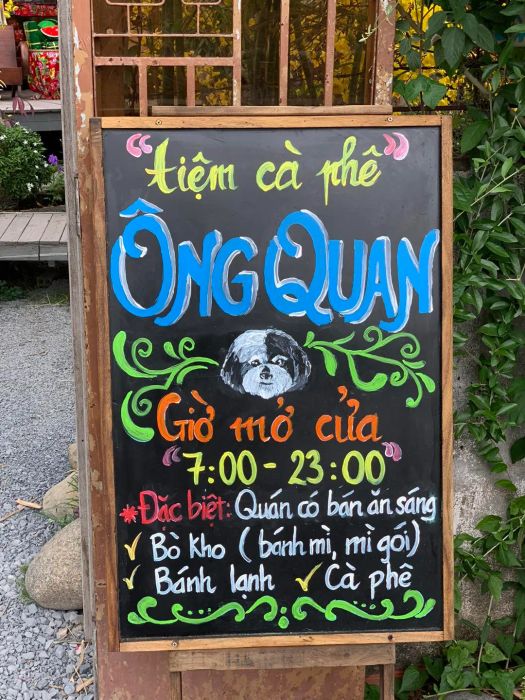 "tiệm cà phê"
ÔNG QUAN
Giờ mở cửa
"7:00 - 23:00"
*Đặc biệt: Quán có bán ăn sáng
✓ Bò kho (bánh mì, mì gói)
✓ Bánh lạnh ✓ Cà phê